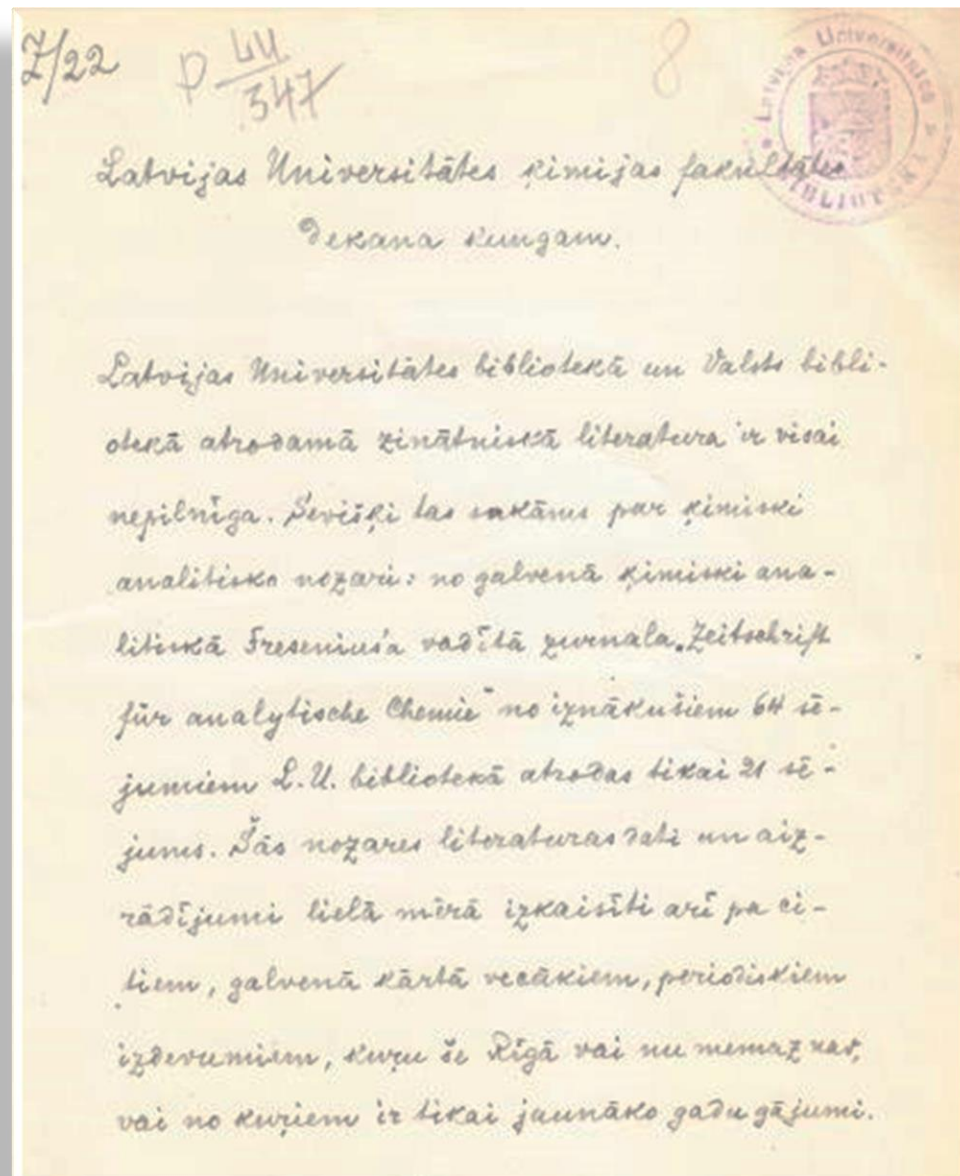 7/22
P LU
347
8
Latvijas Universitātes
BIBLIOTEKA
Latvijas Universitātes ķimijas fakultātes
dekana kungam.
Latvijas Universitātes bibliotekā un Valsts bibli-
otekā atrodamā zinātniskā literatura ir visai
nepilnīga. Sevišķi tas sakāms par ķimiski
analitisko nozari: no galvenā ķimiski ana-
litiskā Fresenius'a vadītā žurnala "Zeitschrift
für analytische Chemie" no iznākušiem 64 sē-
jumiem L.U. bibliotekā atrodas tikai 21 sē-
jums. Šās nozares literaturas dati un aiz-
rādījumi lielā mērā izkaisīti arī pa ci-
tiem, galvenā kārtā vecākiem, periodiskiem
izdevumiem, kuŗu še Rīgā vai nu nemaz nav,
vai no kuŗiem ir tikai jaunāko gadu gājumi.